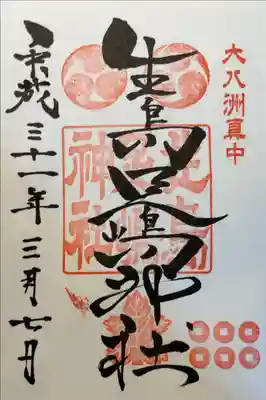 大八洲真中
生島足島神社
生島足島神社
平成三十一年三月七日